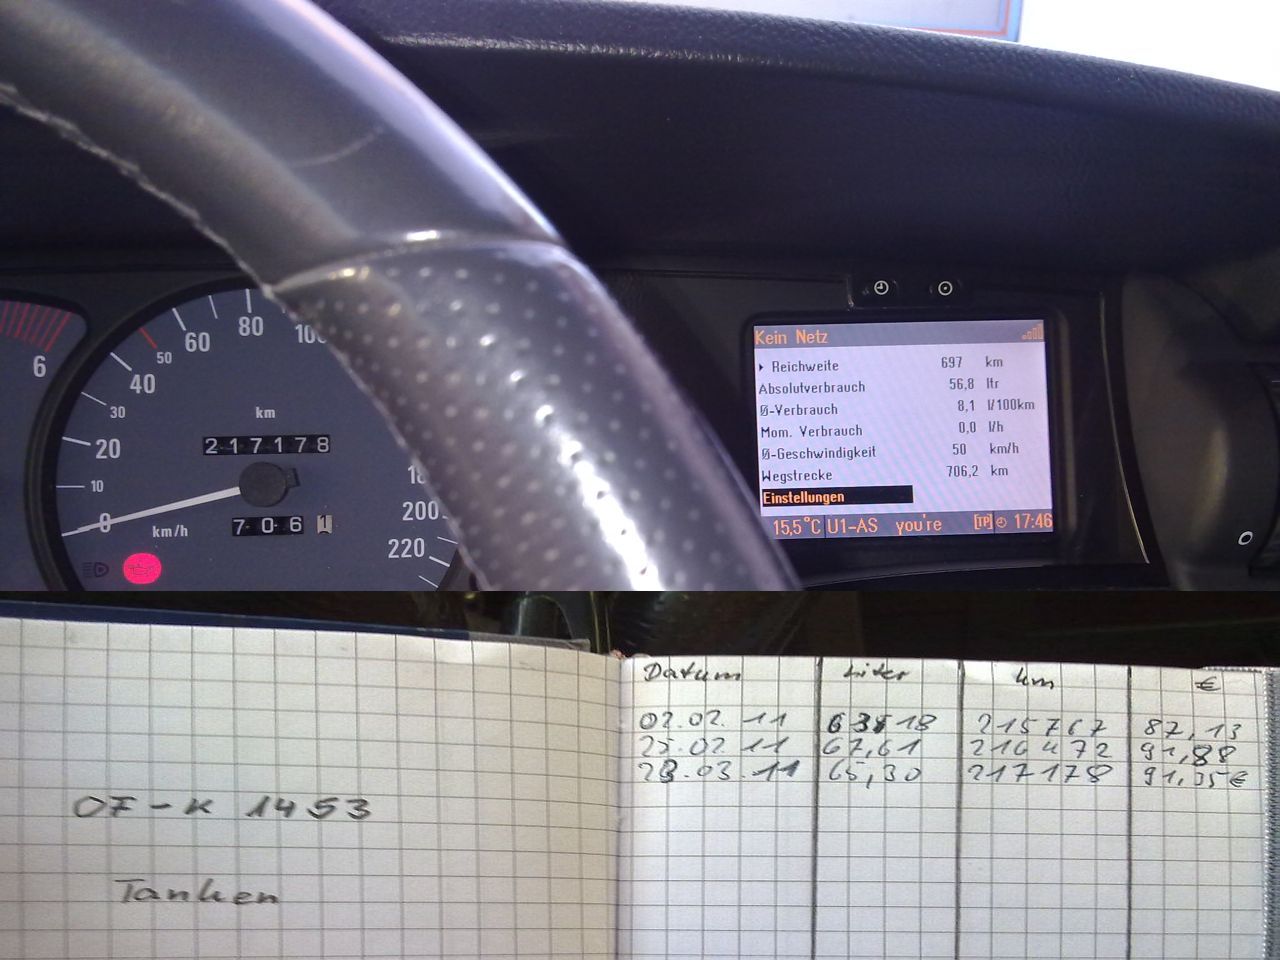 6
0
10
20
30
40
50
60
80
100
200
220
km
217178
706 1
km/h
Kein Netz
Reichweite 697 km
Absolutverbrauch 56,8 ltr
Ø-Verbrauch 8,1 l/100km
Mom. Verbrauch 0,0 l/h
Ø-Geschwindigkeit 50 km/h
Wegstrecke 706,2 km
Einstellungen
15,5°C U1-AS you're [TP] 17:46
OF-K 1453
Tanken
Datum Liter km €
02.02.11 215767 87,13
25.02.11 67,61 216472 91,88
28.03.11 65,30 217178 91,35€